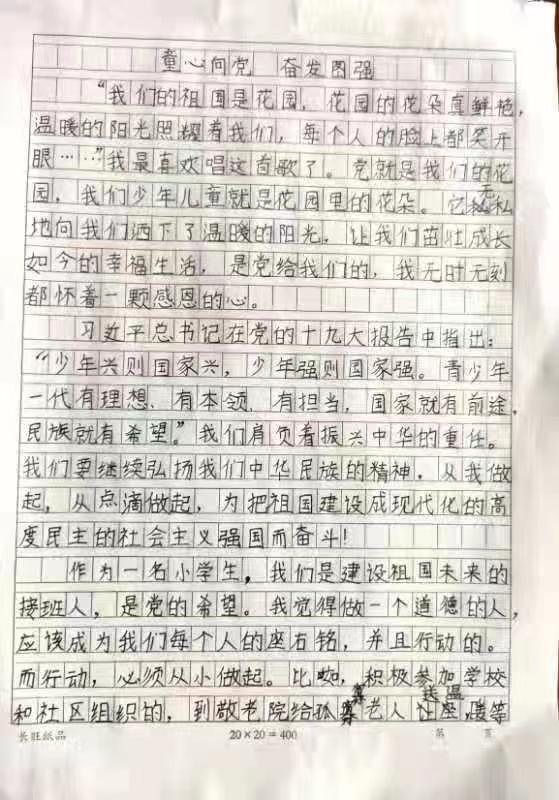 童心向党 奋发图强
"我们的祖国是花园，花园的花朵真鲜艳，
温暖的阳光照耀着我们，每个人的脸上都笑开
眼……"我最喜欢唱这首歌了。党就是我们的花
园，我们少年儿童就是花园里的花朵。它无私
地向我们洒下了温暖的阳光，让我们茁壮成长
如今的幸福生活，是党给我们的，我无时无刻
都怀着一颗感恩的心。
习近平总书记在党的十九大报告中指出：
"少年兴则国家兴，少年强则国家强。青少年
一代有理想、有本领、有担当，国家就有前途，
民族就有希望。"我们肩负着振兴中华的重任。
我们要继续弘扬我们中华民族的精神，从我做
起，从点滴做起，为把祖国建设成现代化的高
度民主的社会主义强国而奋斗！
作为一名小学生，我们是建设祖国未来的
接班人，是党的希望。我觉得做一个道德的人，
应该成为我们每个人的座右铭，并且行动的。
而行动，必须从小做起。比如，积极参加学校
和社区组织的，到敬老院给孤寡老人送温暖等
长旺纸品 20×20=400 第 页